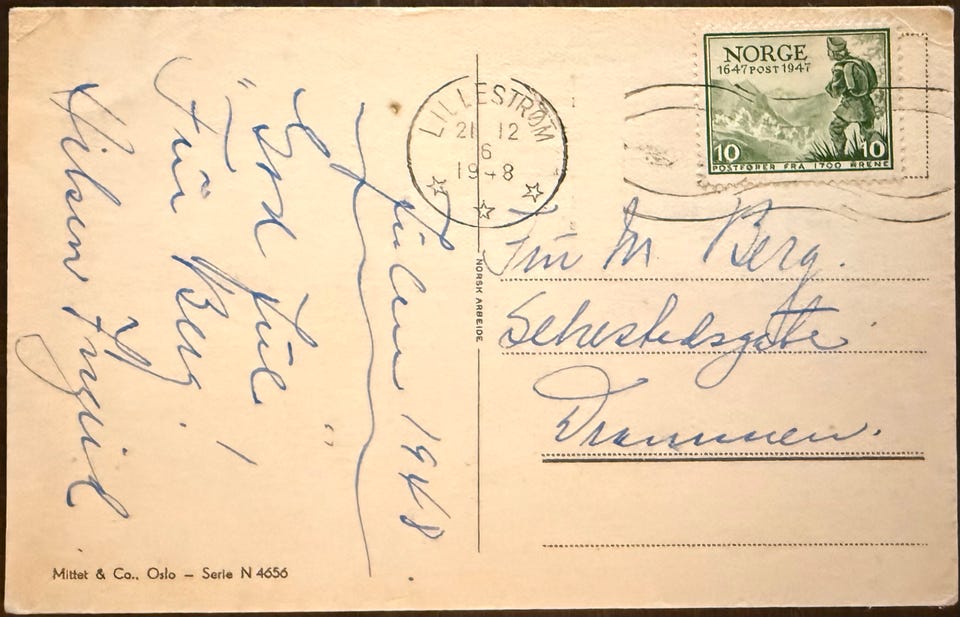 Julen 1948
"God Jul"
Fru Berg!
Hilsen Ingrid.
Mittet & Co., Oslo – Serie N 4656
NORSK ARBEIDE
LILLESTRØM
21 12
6
1948
NORGE
1647 POST 1947
10 10
POSTFØRER FRA 1700 ÅRENE
Fru M Berg.
Sehestedsgate
Drammen.